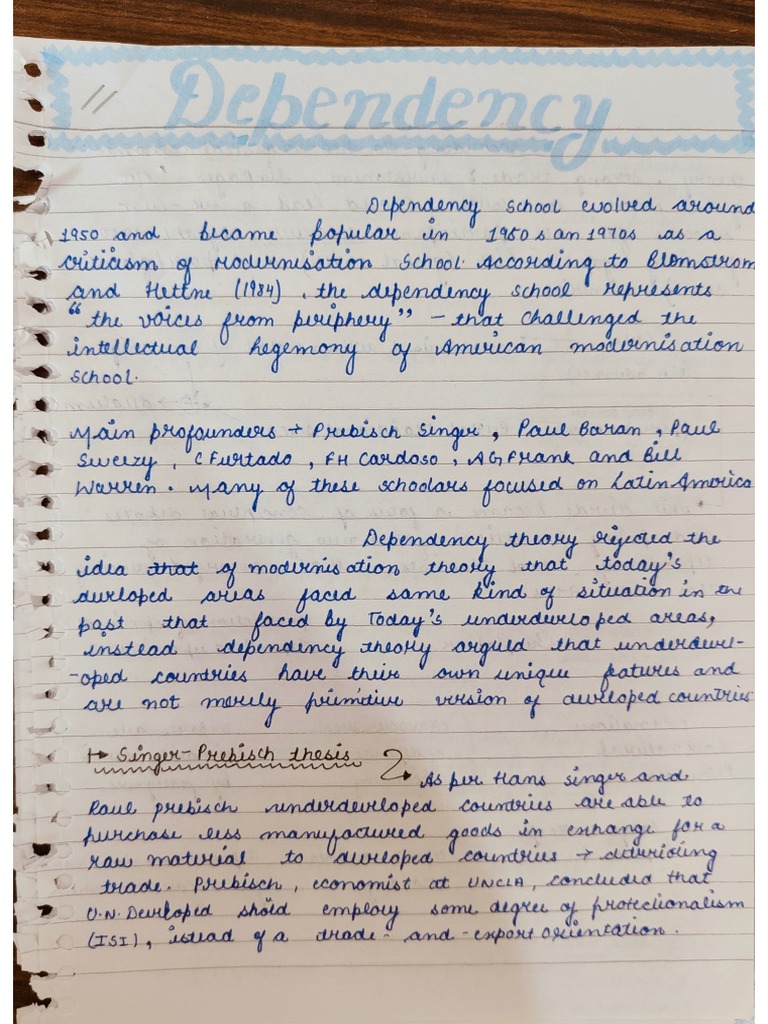 Dependency
Dependency School evolved around
1950 and became popular in 1950s an 1970s as a
criticism of Modernisation School. According to Blomstrom
and Hettne (1984), the dependency school represents
"the voices from periphery" - that challenged the
intellectual hegemony of American modernisation
School.
Main profounders → Prebisch Singer, Paul Baran, Paul
Sweezy, C Furtado, FH Cardoso, AG Frank and Bill
Warren. Many of these schodars focused on Latin America
Dependency theory rejected the
idea that of modernisation theory that today's
devloped areas faced same kind of situation in the
past that faced by Today's underdevloped areas,
instead dependency theory argued that underdevel-
-oped countries have their own unique features and
are not merely primitive version of developed countries
Singer-Prebisch thesis
As per Hans Singer and
Raul prebisch underdeveloped countries are able to
purchase less manufactured goods in exhange for a
raw material to developed countries →
trade. Prebisch, economist at UNCLA, concluded that
U.N. Developed shold employ some degree of protectionalism
(ISI), istead of a trade- and-export orientation.